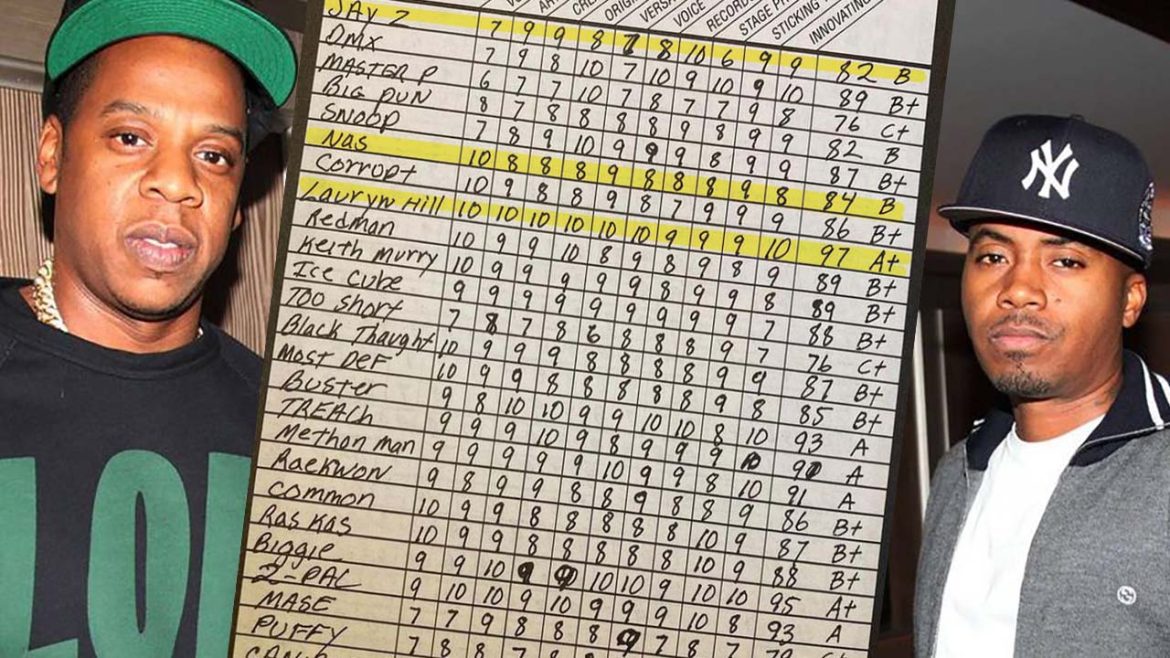 VOICE
RECORDS
INNOVATING
JAY Z 7 9 9 8 7 8 10 6 9 9 82 B
DMX 7 9 8 10 7 10 9 10 9 10 89 B+
MASTER P 6 7 7 10 7 8 7 7 9 8 76 C+
BIG PUN 8 7 8 8 8 8 9 8 9 9 82 B
SNOOP 7 8 9 10 9 9 9 8 9 9 87 B+
Nas 10 8 8 8 9 8 8 8 9 8 84 B
Corrupt 10 9 8 8 9 8 7 9 9 9 86 B+
Lauryn Hill 10 10 10 10 10 10 9 9 9 10 97 A+
Redman 10 9 9 10 8 9 8 9 8 9 89 B+
Keith Murry 10 9 9 9 9 9 9 9 9 8 89 B+
Ice Cube 9 9 9 9 9 9 9 9 9 7 88 B+
Too Short 7 8 7 8 6 8 8 8 9 7 76 C+
Black Thaught 10 9 9 9 8 8 8 8 9 9 87 B+
MOST DEF 10 9 9 8 8 8 8 8 9 8 85 B+
Buster 9 8 10 10 9 9 10 10 8 10 93 A
TREACH 9 9 9 10 9 8 9 9 9 10 A
Methon man 9 9 9 9 9 10 9 9 8 10 91 A
Raekwon 9 8 9 9 8 8 9 8 8 9 86 B+
Common 10 9 9 8 8 8 8 8 10 9 87 B+
Ras Kas 10 9 9 8 8 8 8 8 10 9 88 B+
Biggie 9 9 10 9 9 10 10 9 10 10 95 A+
2-PAC 9 10 10 9 10 9 9 9 10 8 93 A
MASE 7 7 9 8 8 8 9 7 8 7
PUFFY 7 8 8
NY